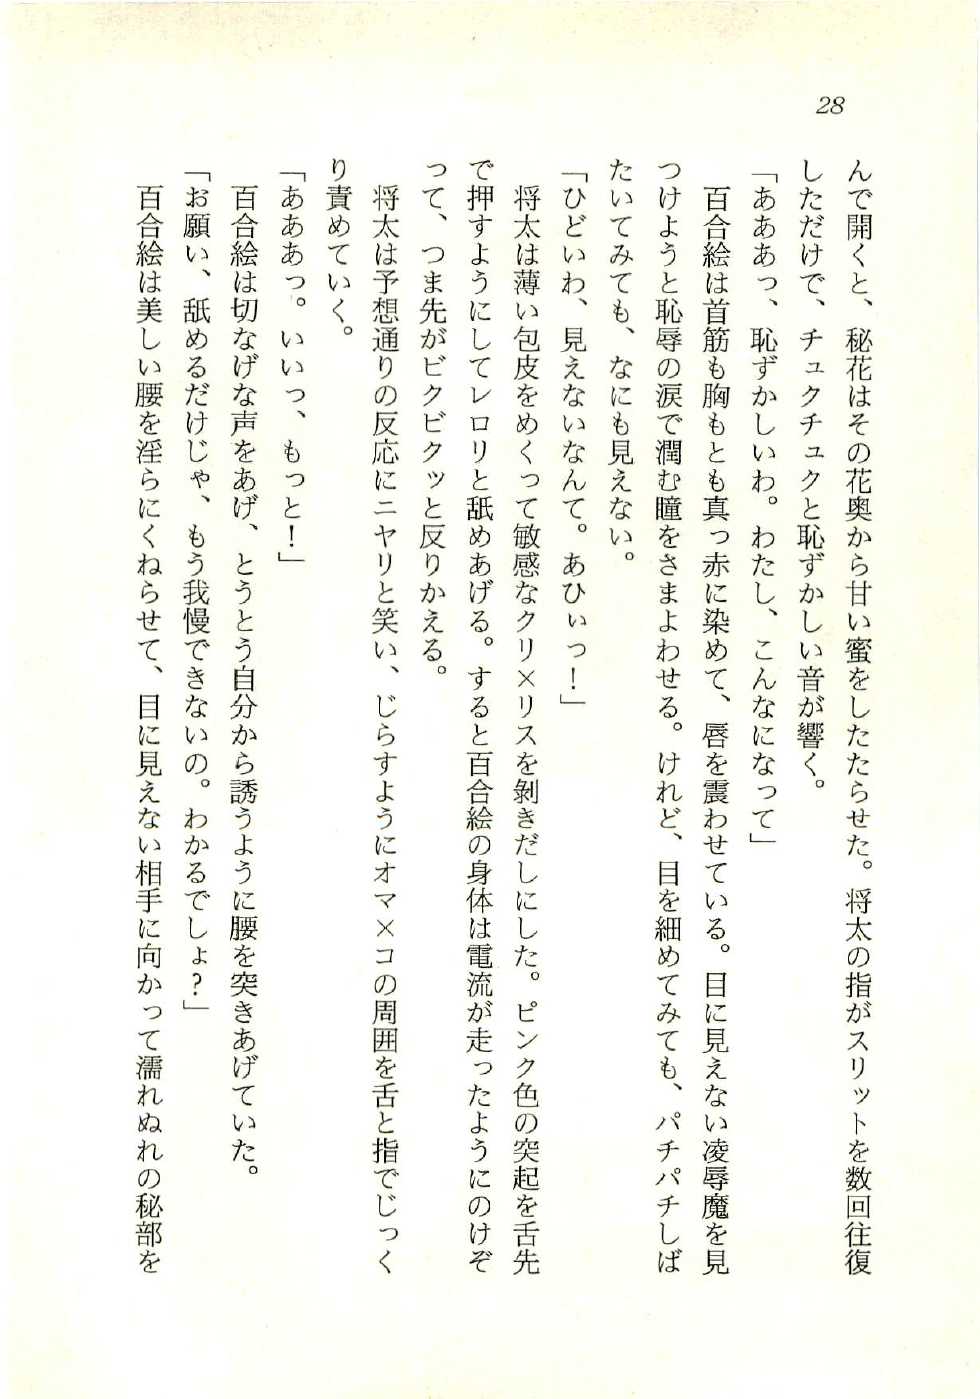 28
んで開くと、秘花はその花奥から甘い蜜をしたたらせた。将太の指がスリットを数回往復
しただけで、チュクチュクと恥ずかしい音が響く。
「あああっ、恥ずかしいわ。わたし、こんなになって」
百合絵は首筋も胸もとも真っ赤に染めて、唇を震わせている。目に見えない凌辱魔を見
つけようと恥辱の涙で潤む瞳をさまよわせる。けれど、目を細めてみても、パチパチしば
たいてみても、なにも見えない。
「ひどいわ、見えないなんて。あひぃっ！」
将太は薄い包皮をめくって敏感なクリ×リスを剝きだしにした。ピンク色の突起を舌先
で押すようにしてレロリと舐めあげる。すると百合絵の身体は電流が走ったようにのけぞ
って、つま先がビクビクッと反りかえる。
将太は予想通りの反応にニヤリと笑い、じらすようにオマ×コの周囲を舌と指でじっく
り責めていく。
「あああっ。いいっ、もっと！」
百合絵は切なげな声をあげ、とうとう自分から誘うように腰を突きあげていた。
「お願い、舐めるだけじゃ、もう我慢できないの。わかるでしょ？」
百合絵は美しい腰を淫らにくねらせて、目に見えない相手に向かって濡れぬれの秘部を